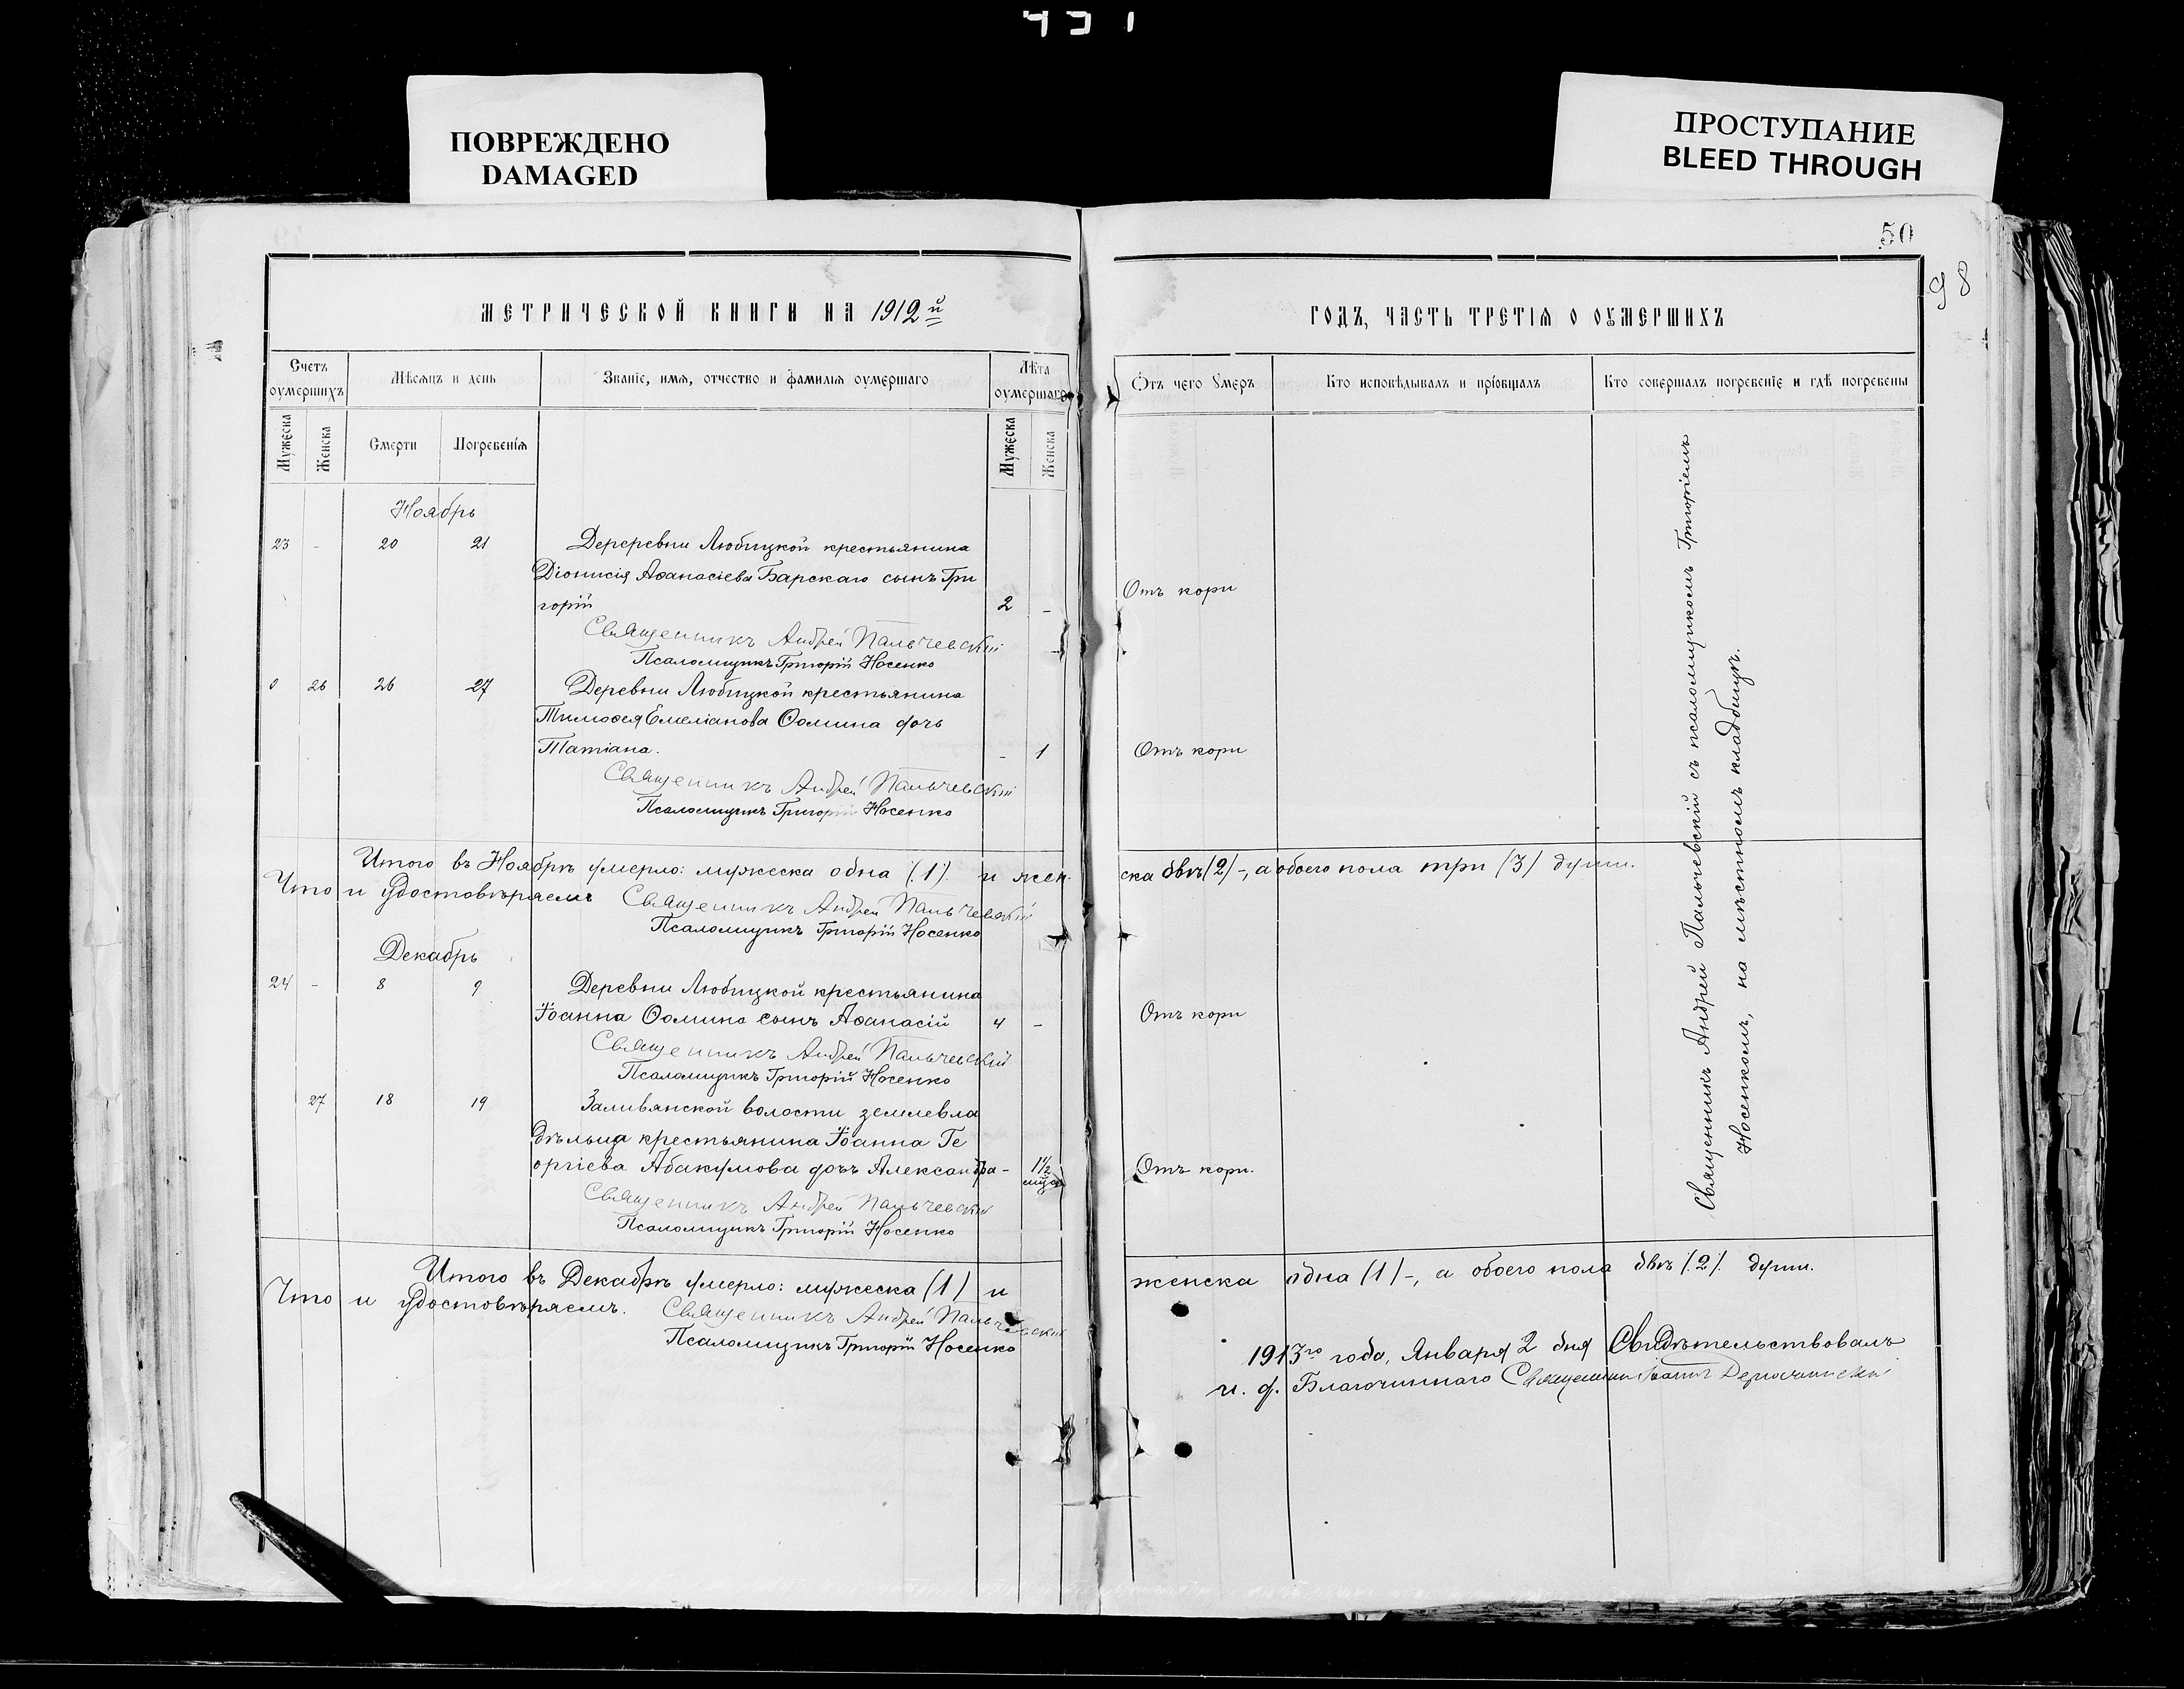 431
ПОВРЕЖДЕНО
DAMAGED
ПРОСТУПАНИЕ
BLEED THROUGH
50
98
МЕТРИЧЕСКОЙ КНИГИ НА 1912й
Счетъ оумершихъ
Мѣсяцъ и день
Званіе, имя, отчество и фамилія оумершаго
Лѣта оумершаго
Мужеска
Женска
Смерти
Погребенія
Мужеска
Женска
Ноябрь
23 - 20 21 Дереревни Любицкой крестьянина
Діонисія Аѳанасіева Барскаго сынъ Гри
горій 2 -
Священникъ Андрей Пальчевскій
Псаломщикъ Григорій Носенко
0 26 26 27 Деревни Любицкой крестьянина
Тимоѳея Емеліанова Ѳомина дочь
Татіана. - 1
Священникъ Андрей Пальчевскій
Псаломщикъ Григорій Носенко
Итого въ Ноябрѣ умерло: мужеска одна (1) и жен-
Что и удостовѣряемъ Священникъ Андрей Пальчевскій
Псаломщикъ Григорій Носенко
Декабрь
24 - 8 9 Деревни Любицкой крестьянина
Іоанна Ѳомина сынъ Аѳанасій 4 -
Священникъ Андрей Пальчевскій
Псаломщикъ Григорій Носенко
27 18 19 Заливянской волости землевла
дѣльца крестьянина Іоанна Ге
оргіева Абакумова дочь Александра - 1½
Священникъ Андрей Пальчевскій
Псаломщикъ Григорій Носенко
Итого въ Декабрѣ умерло: мужеска (1) и
Что и удостовѣряемъ. Священникъ Андрей Пальчевскій
Псаломщикъ Григорій Носенко
ГОДЪ, ЧАСТЬ ТРЕТІЯ О ОУМЕРШИХЪ
Отъ чего умеръ
Кто исповѣдывалъ и пріобщалъ
Кто совершалъ погребеніе и гдѣ погребены
Отъ кори
Отъ кори
ска двѣ (2) -, а обоего пола три (3) души.
Отъ кори
Отъ кори.
Священникъ Андрей Пальчевскій съ псаломщикомъ Григоріемъ
Носенкомъ, на мѣстномъ кладбищѣ.
женска одна (1) -, а обоего пола двѣ (2) души.
1913го года, Января 2 дня Свидѣтельствовалъ
и. д. Благочиннаго Священникъ Іоаннъ